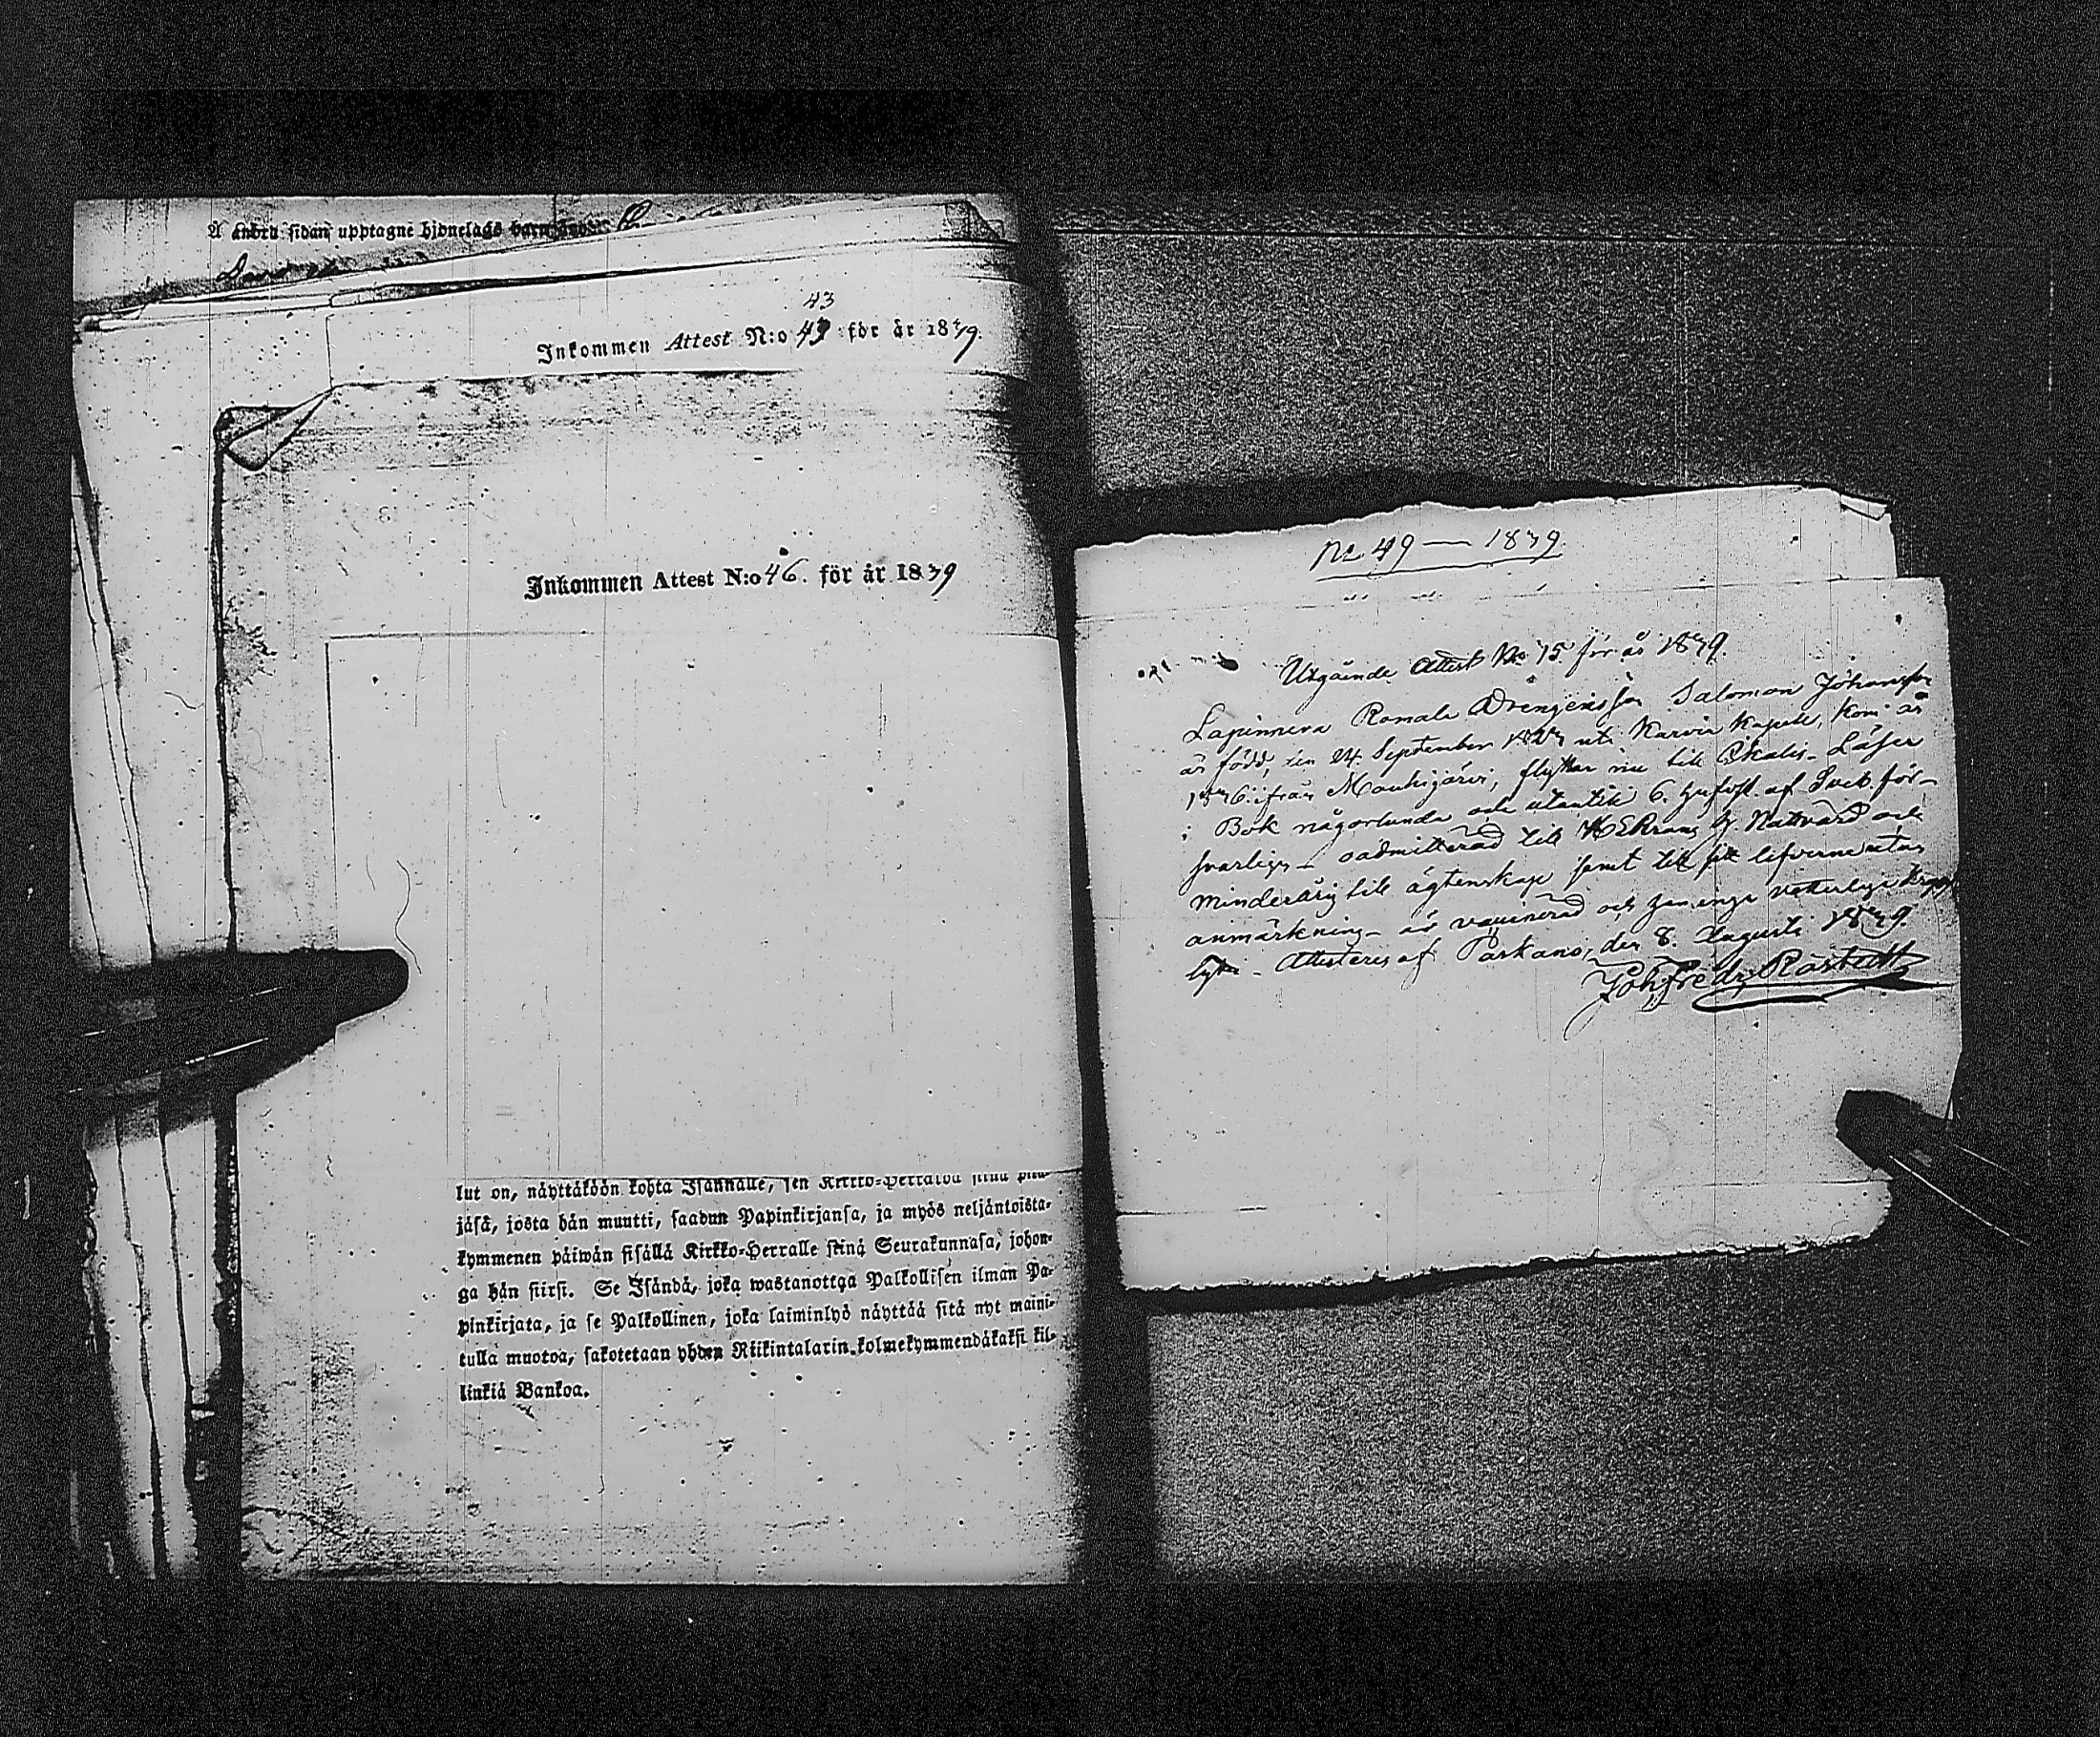 Å andra sidan upptagne hjonelags barn
Inkommen Attest N:o 43 för år 1839.
43
Inkommen Attest N:o 46. för år 1839
lut on, näyttäköön kohta Isännälle, sen Kirkko-Herralda siinä pitä-
jäsä, josta hän muutti, saadun Papinkirjansa, ja myös neljäntoista-
kymmenen päiwän sisällä Kirkko-Herralle siinä Seurakunnasa, johon-
ga hän siirsi. Se Isändä, joka wastanottaa Palkollisen ilman Pa-
pinkirjata, ja se Palkollinen, joka laiminlyö näyttää sitä nyt maini-
tulla muotoa, sakotetaan yhden Riikintalarin kolmekymmendäkaksi kil-
linkiä Bankoa.
No 49 — 1839.
Utgående Attest No 75 för år 1839.
Lapinneva Romala Drengens son Salomon Johansson
är född, den 24. September uti Karvia Kapell, kom år
1836 ifrån Mouhijärvi, flyttar nu till Ikalis - Läser
i Bok någorlunda och utantill 6. hufvst. af Sveb. för-
svarligen - oadmitterad till H. Nattvard och
minderårig till ägtenskap samt till sitt lefverne utan
anmärkning - är vaccinerad och
lyte - Attesteres af Parkano, den 8. Augusti 1839.
Joh. Fredr. Råstedt